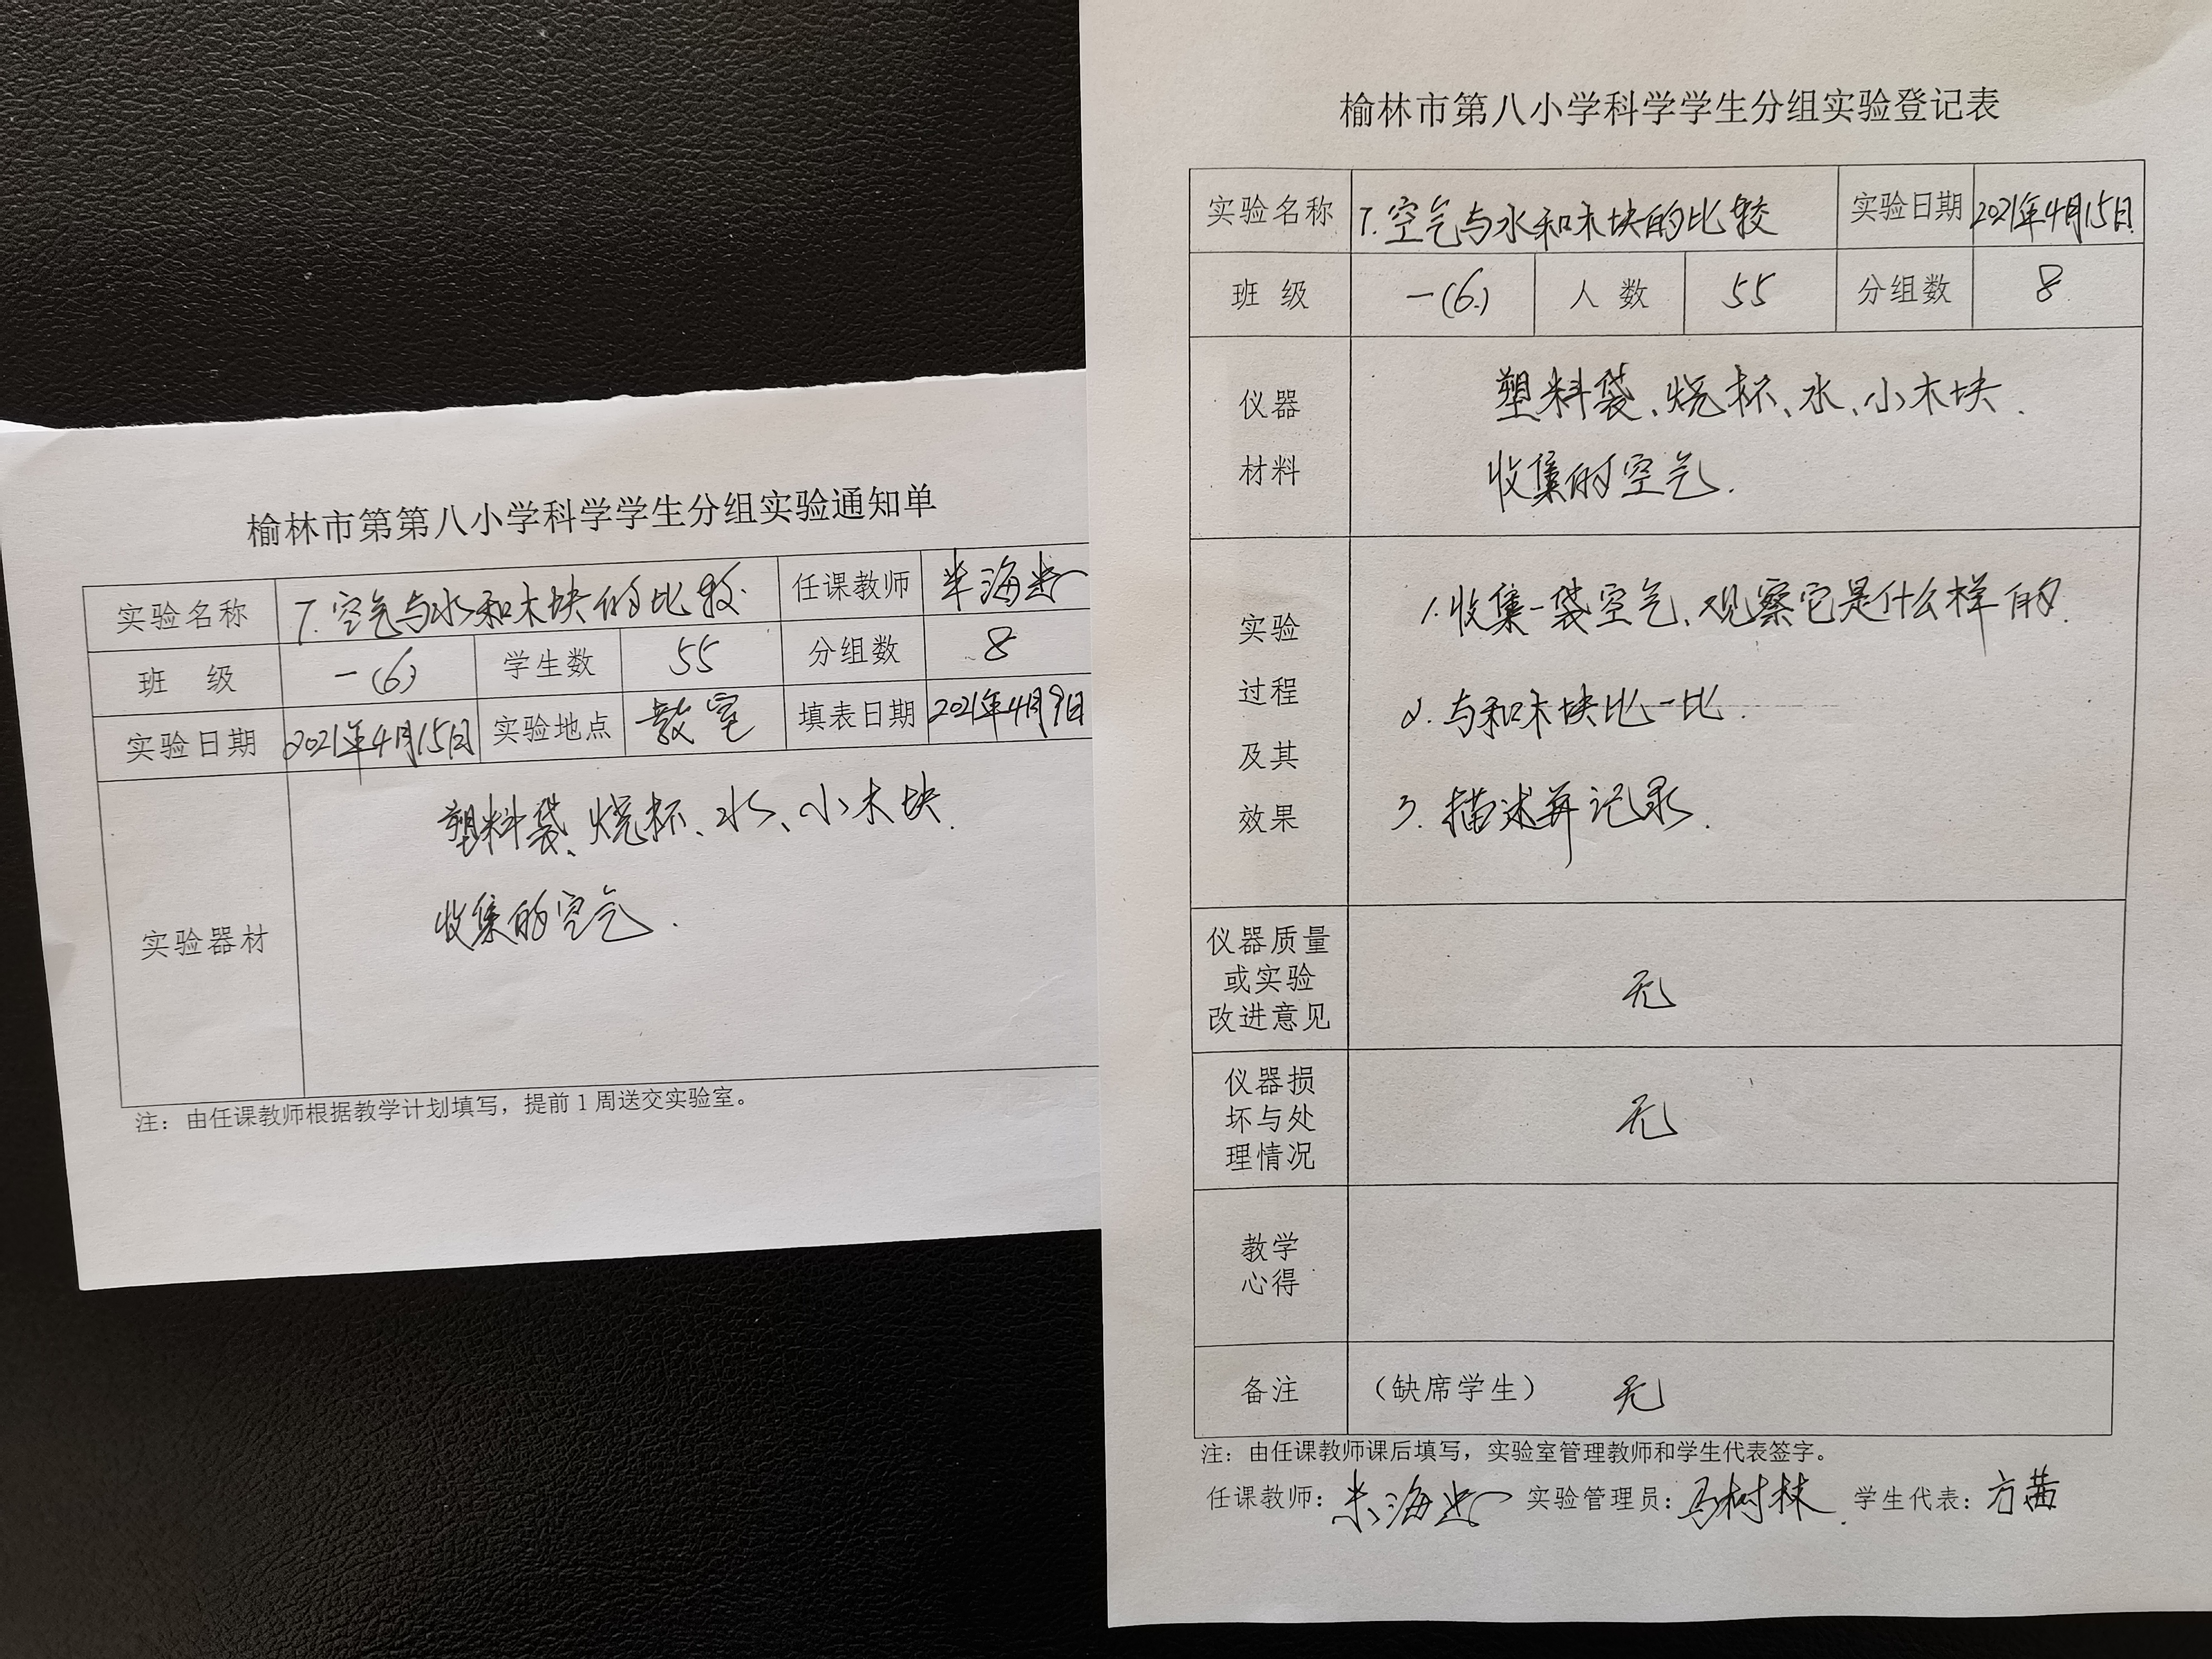 榆林市第第八小学科学学生分组实验通知单
实验名称 7.空气与水和木块的比较. 任课教师 海
班 级 一(6) 学生数 55 分组数 8
实验日期 2021年4月15日 实验地点 教室 填表日期 2021年4月9日
实验器材
塑料袋、烧杯、水、小木块.
收集的空气.
注：由任课教师根据教学计划填写，提前1周送交实验室。
榆林市第八小学科学学生分组实验登记表
实验名称 7.空气与水和木块的比较 实验日期 2021年4月15日
班 级 一(6) 人 数 55 分组数 8
仪器
材料
塑料袋、烧杯、水、小木块.
收集的空气.
实验
过程
及其
效果
1.收集一袋空气、观察它是什么样的.
2.与和木块比一比.
3.描述并记录.
仪器质量
或实验
改进意见
无
仪器损
坏与处
理情况
无
教学
心得
备注 （缺席学生） 无
注：由任课教师课后填写，实验室管理教师和学生代表签字。
任课教师： 海 实验管理员：马树林 学生代表：方茜